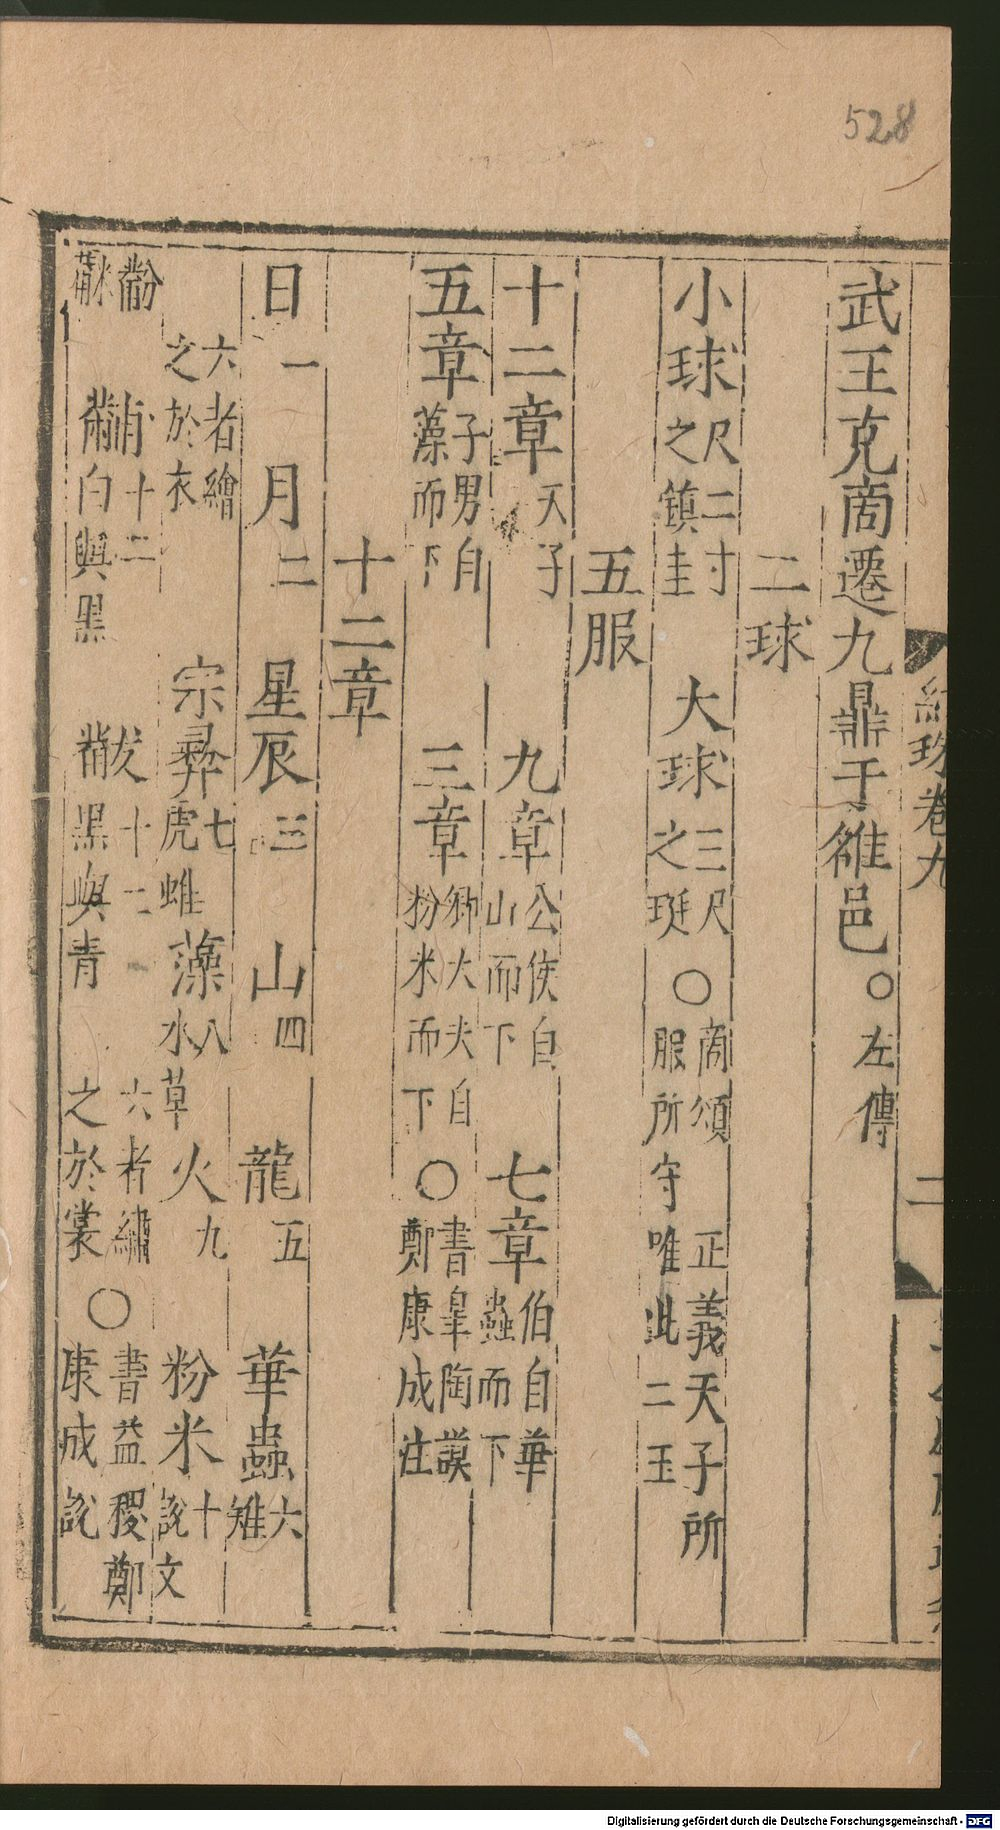 528
紺珠卷九
二
武王克商遷九鼎于雒邑○左傳
二球
小球尺二寸之鎮圭 大球三尺之珽○商頌 正義天子所服所守唯此二玉
五服
十二章天子 九章公侯自山而下 七章伯自華蟲而下
五章子男自藻而下 三章卿大夫自粉米而下○書皐陶謨鄭康成注
十二章
日一 月二 星辰三 山四 龍五 華蟲六雉
六者繪之於衣 宗彝七虎蜼 藻八水草 火九 粉米十說文
黺䋛 黼十一白與黑 黻十二黑與青 六者繡之於裳○書益稷鄭康成說
Digitalisierung gefördert durch die Deutsche Forschungsgemeinschaft - DFG